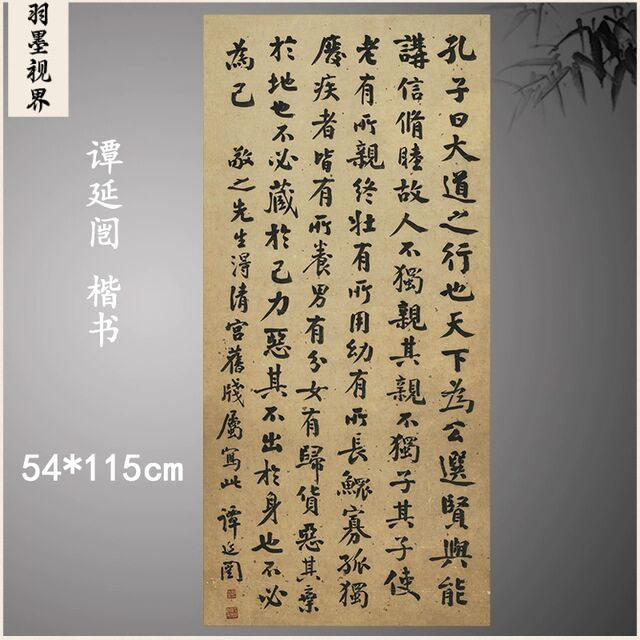 羽墨视界
谭延闿 楷书
54*115cm
孔子曰大道之行也天下為公選賢與能
講信脩睦故人不獨親其親不獨子其子使
老有所親終壯有所用幼有所長鰥寡孤獨
廢疾者皆有所養男有分女有歸貨惡其棄
於地也不必藏於己力惡其不出於身也不必
為己 敬之先生得清宮舊牋屬寫此 譚延闓